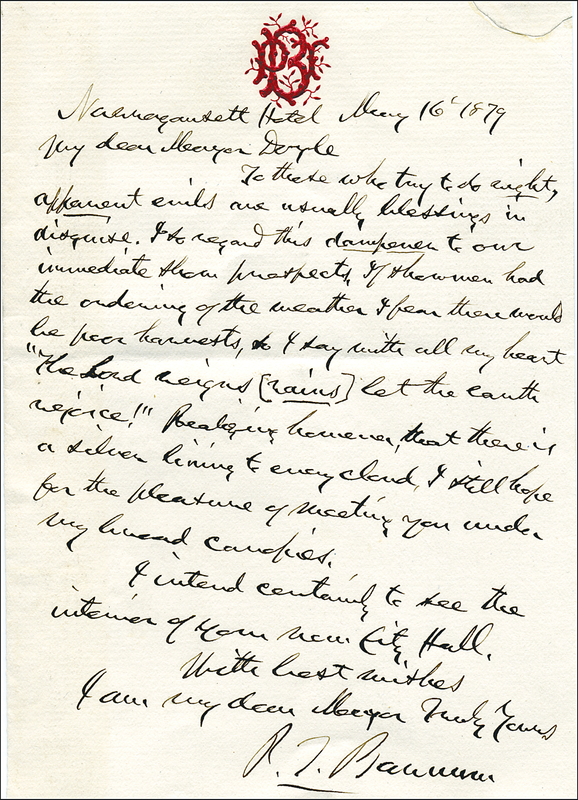 PTB
Narragansett Hotel May 16 1879
My dear Mayor Doyle
To those who try to do right,
apparent evils are usually blessings in
disguise. I so regard this dampener to our
immediate show prospects, If showmen had
the ordering of the weather I fear there would
be poor harvests, so I say with all my heart
"The Lord reigns [rains] let the earth
rejoice!" Realizing however, that there is
a silver lining to every cloud, I still hope
for the pleasure of meeting you under
my broad canopies.
I intend certainly to see the
interior of your new City Hall.
With best wishes
I am my dear Mayor Truly Yours
P. T. Barnum